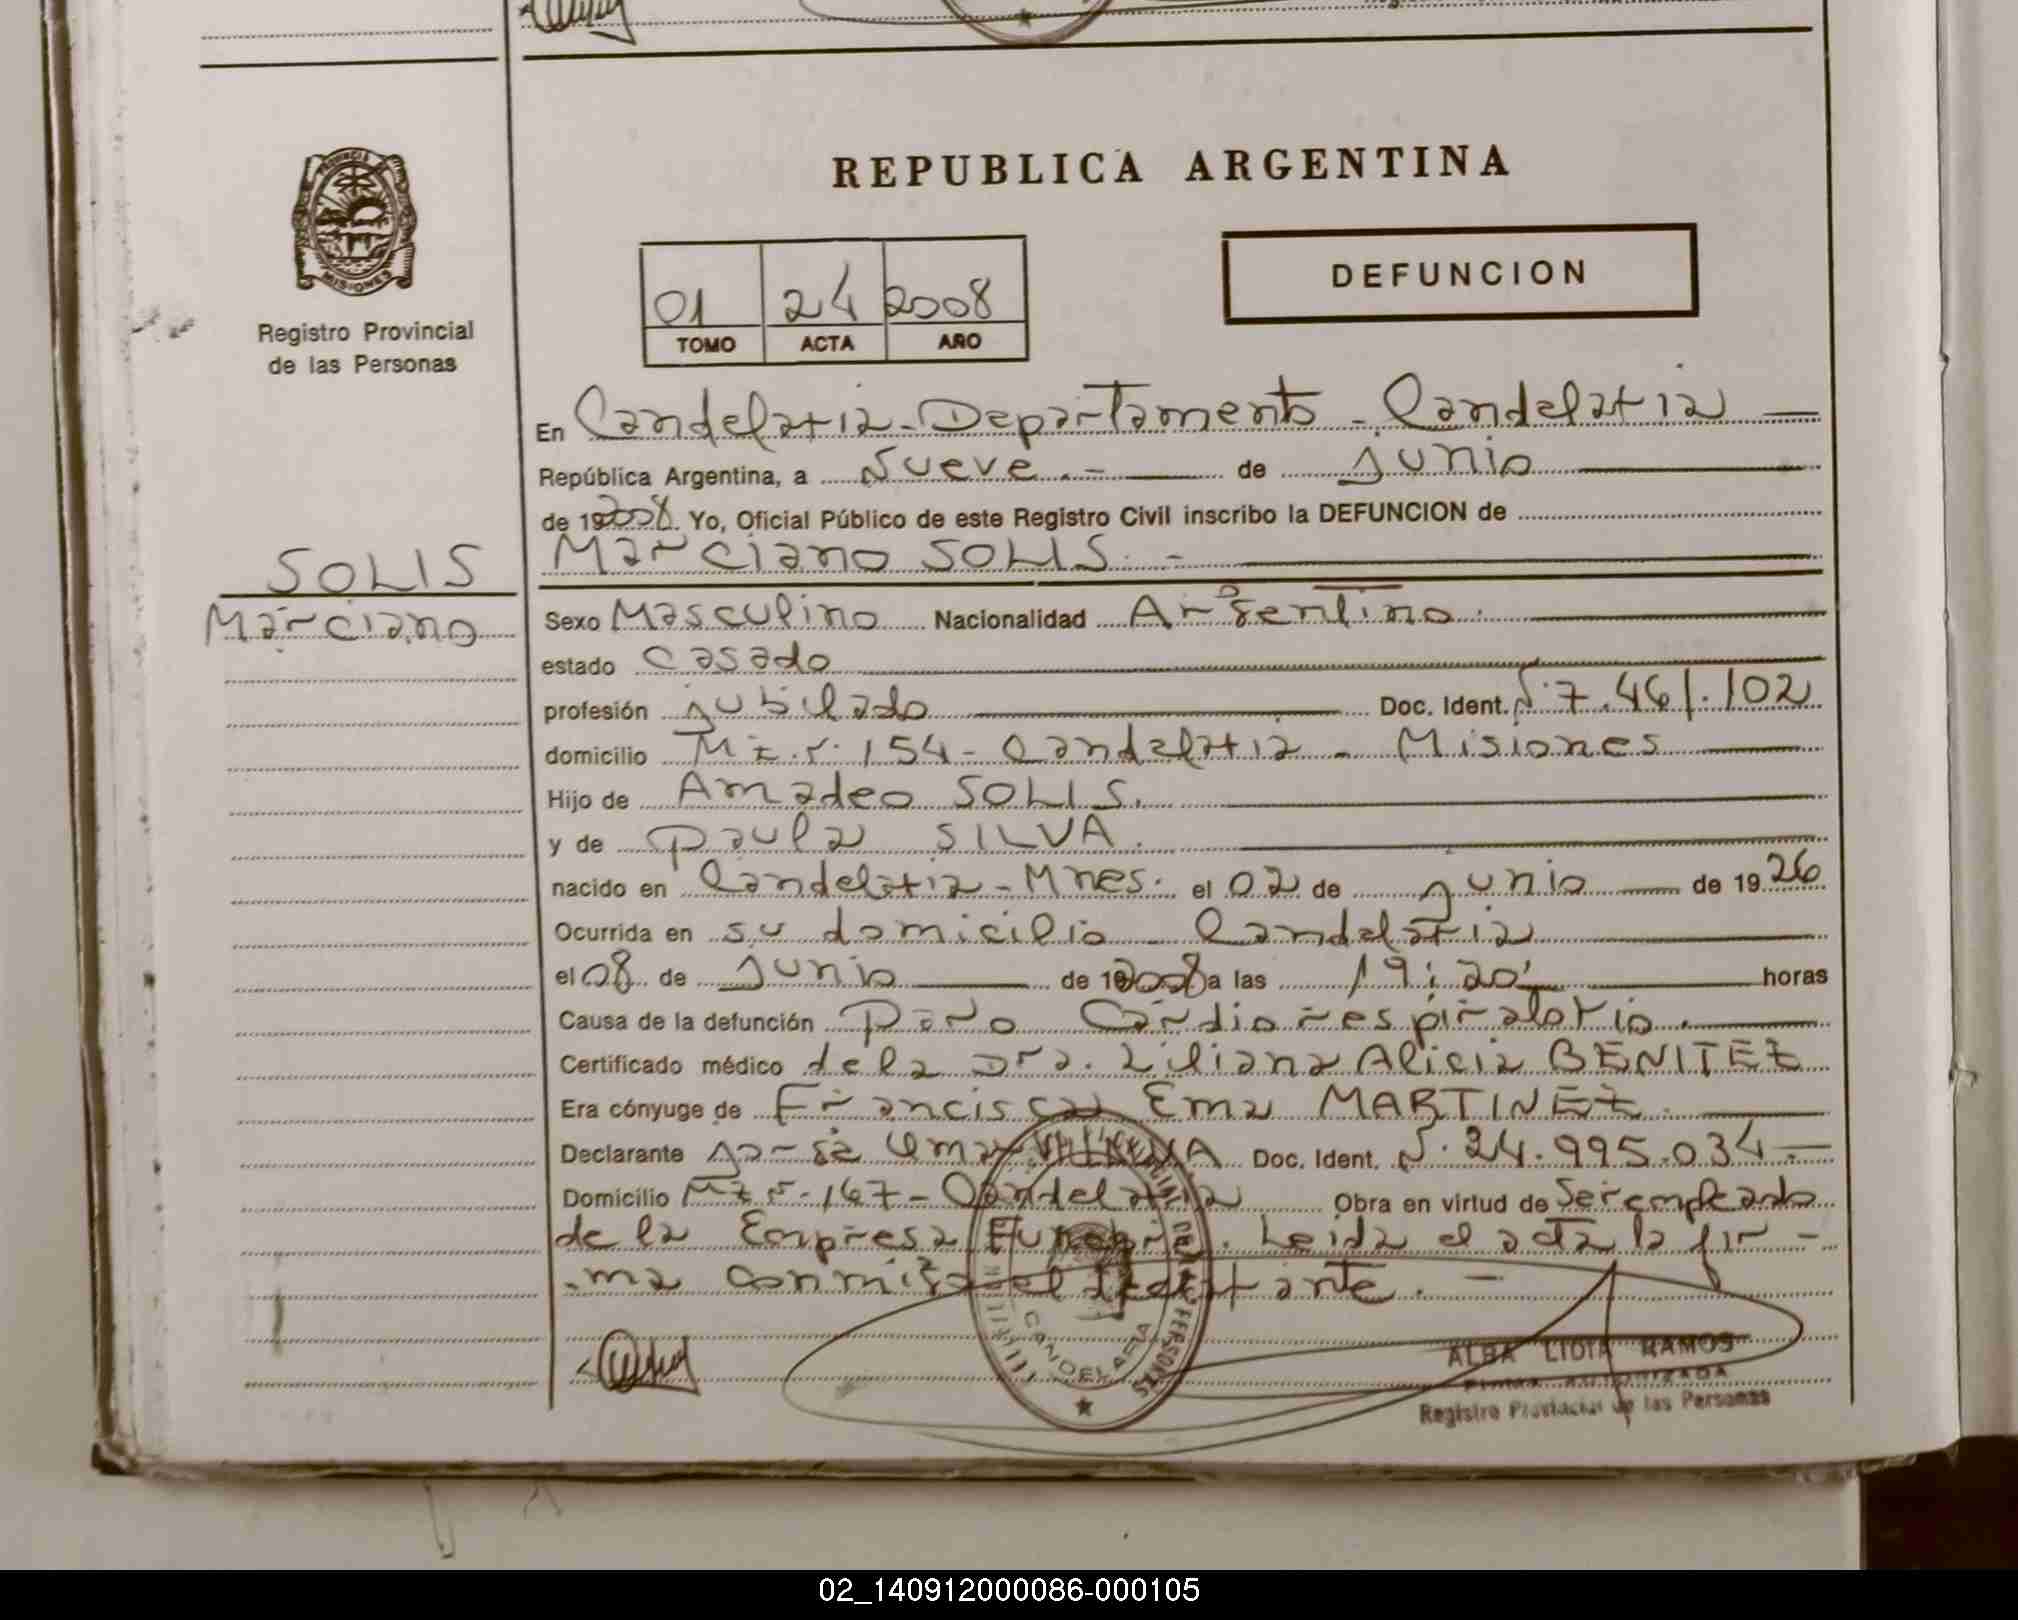 PROVINCIA DE
MISIONES
Registro Provincial
de las Personas
SOLIS
Marciano
REPUBLICA ARGENTINA
01 24 2008
TOMO ACTA AÑO
DEFUNCION
En Candelaria - Departamento - Candelaria
República Argentina, a Nueve.- de junio
de 192008. Yo, Oficial Público de este Registro Civil inscribo la DEFUNCION de
Marciano SOLIS. -
Sexo Masculino Nacionalidad Argentino.
estado casado
profesión jubilado Doc. Ident. Nº 7.461.102
domicilio Mz. Nº 154 - Candelaria - Misiones
Hijo de Amadeo SOLIS.
y de Paula SILVA.
nacido en Candelaria - Mnes. el 02 de junio de 1926
Ocurrida en su domicilio Candelaria
el 08 de junio de 192008 a las 19:20' horas
Causa de la defunción Paro Cardiorespiratorio.
Certificado médico de la Dra. Liliana Alicia BENITEZ
Era cónyuge de Francisca Ema MARTINEZ.
Declarante Jorge Omar Doc. Ident. Nº 24.995.034 -
Domicilio Mz Nº - 167 - Candelaria Obra en virtud de Ser empleado
de la Empresa Funebre. Leida el acta la fir -
- ma conmigo el declarante. -
CANDELARIA
ALBA LIDIA RAMOS
FIRMA AUTORIZADA
Registro Provincial de las Personas
02_140912000086-000105